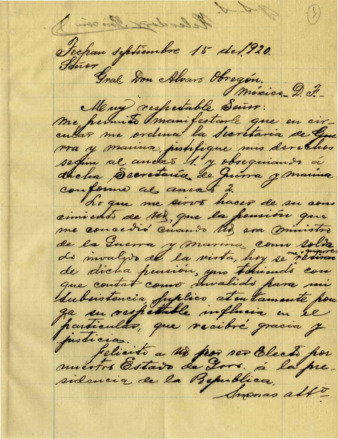 Tecpan septiembre 15 de 1920.
Señor
Gral Don Alvaro Obregón.
México D. F.
Muy respetable Señor:
me permito manifestarle que en cir-
cular me ordena la secretaria de Gue-
rra y marina, justifique mis derechos
según al anexo 1. y obsequiando á
dicha Secretaría de Guerra y marina
conforme al anexo 2.
Lo que me sirvo hacer de su cono-
cimiento de Ud, que la pensión que
me concedió cuando Ud era ministro
de la Guerra y Marina como solda-
do invalido de la vista, hoy se me
de dicha pensión, y no teniendo con
que contar como invalido para mi
subsistencia suplico atentamente pon-
ga su respetable influencia en el
particular, que recibiré gracia y
justicia.
Felicito a Ud por ser Electo por
nuestro Estado de Gro. á la pre-
sidencia de la Republica.